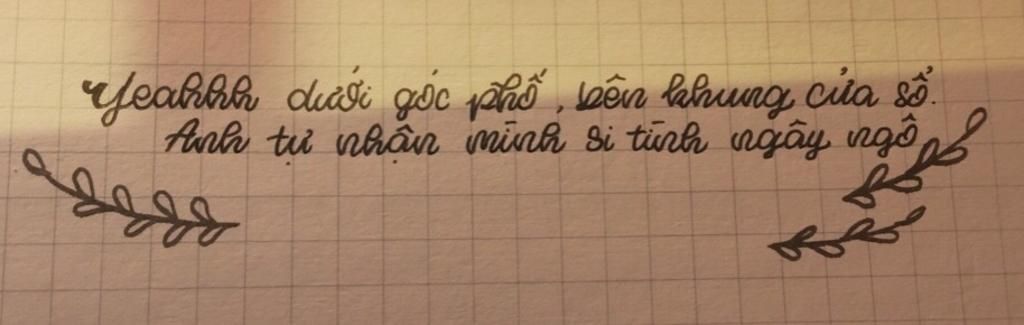 Yeahhh dưới góc phố, bên khung cửa sổ.
Anh tự nhận mình si tình ngây ngô